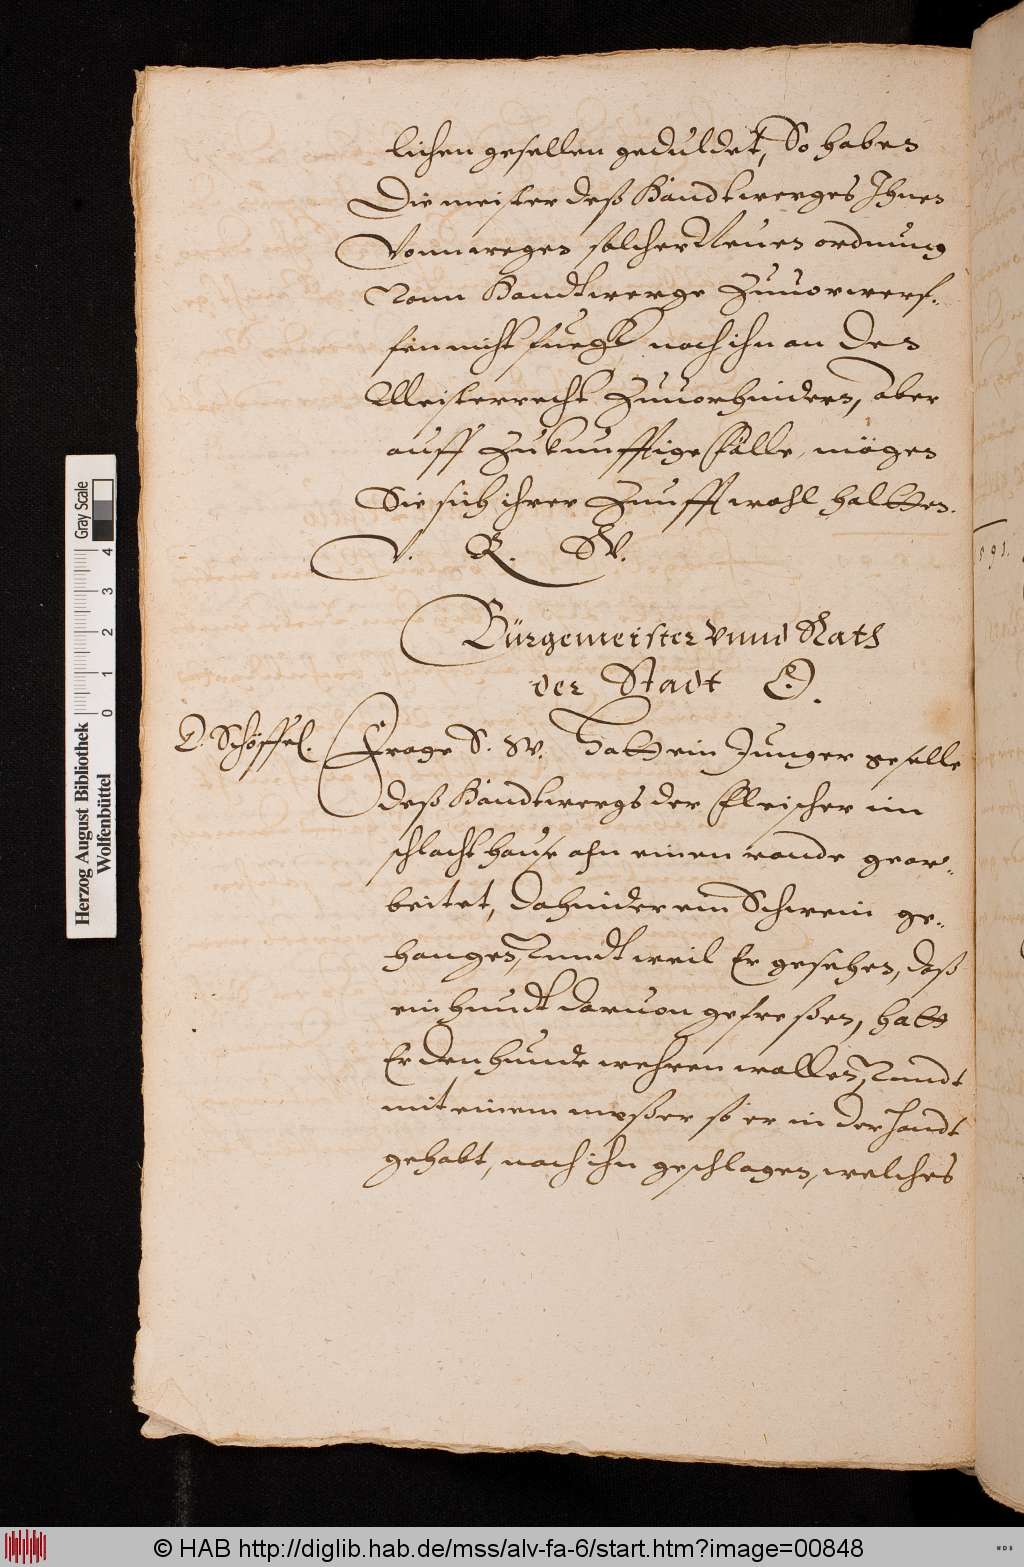 lichen gesellen geduldet, So haben
Die meister deß Handtwerges Ihnen
Vonwegen solcher Neuen ordnung
Vom Handtwerge Zuuorwerf-
fen nicht fuegk noch ihn an den
Meisterrecht Zuuorhindern, aber
auff Zukunfftige Fälle, mögen
Sie sich ihrer Zunfft wohl haltten.
V. R. W.
Bürgemeister vnnd Rath
der Stadt O.
D. Schöffel.
Frage S. W. Hatt ein Junger geselle
deß Handtwergs der Fleischer im
schlachthause ahn einen rande gear-
beitet, dahnider ein Schwein ge-
hangen, Vnndt weil Er gesehen, daß
ein hundt daruon gefreßen, hatt
Er den hunde wehren wollen, Vnndt
mit einem meßer so er in der Handt
gehabt, nach ihn geschlagen, welches
591.
Herzog August Bibliothek
Wolfenbüttel
0 1 2 3 4
Gray Scale
© HAB http://diglib.hab.de/mss/alv-fa-6/start.htm?image=00848